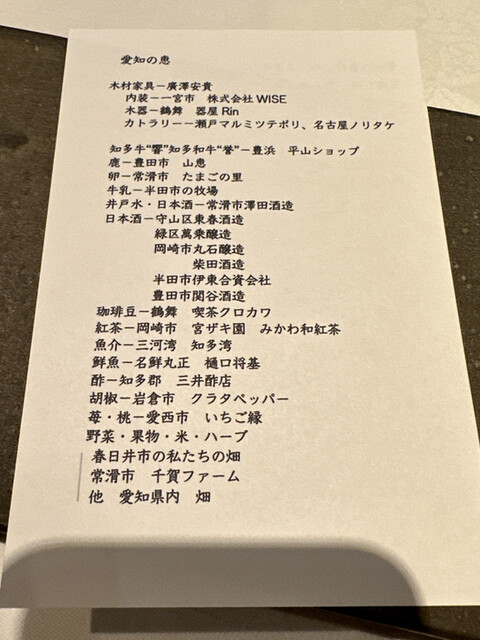 愛知の恵
木材家具－廣澤安貴
内装－一宮市 株式会社WISE
木器－鶴舞 器屋Rin
カトラリー－瀬戸マルミツテポリ、名古屋ノリタケ
知多牛“響”知多和牛“誉”－豊浜 平山ショップ
鹿－豊田市 山恵
卵－常滑市 たまごの里
牛乳－半田市の牧場
井戸水・日本酒－常滑市澤田酒造
日本酒－守山区東春酒造
緑区萬乗醸造
岡崎市丸石醸造
柴田酒造
半田市伊東合資会社
豊田市関谷酒造
珈琲豆－鶴舞 喫茶クロカワ
紅茶－岡崎市 宮ザキ園 みかわ和紅茶
魚介－三河湾 知多湾
鮮魚－名鮮丸正 樋口将基
酢－知多郡 三井酢店
胡椒－岩倉市 クラタペッパー
苺・桃－愛西市 いちご縁
野菜・果物・米・ハーブ
春日井市の私たちの畑
常滑市 千賀ファーム
他 愛知県内 畑